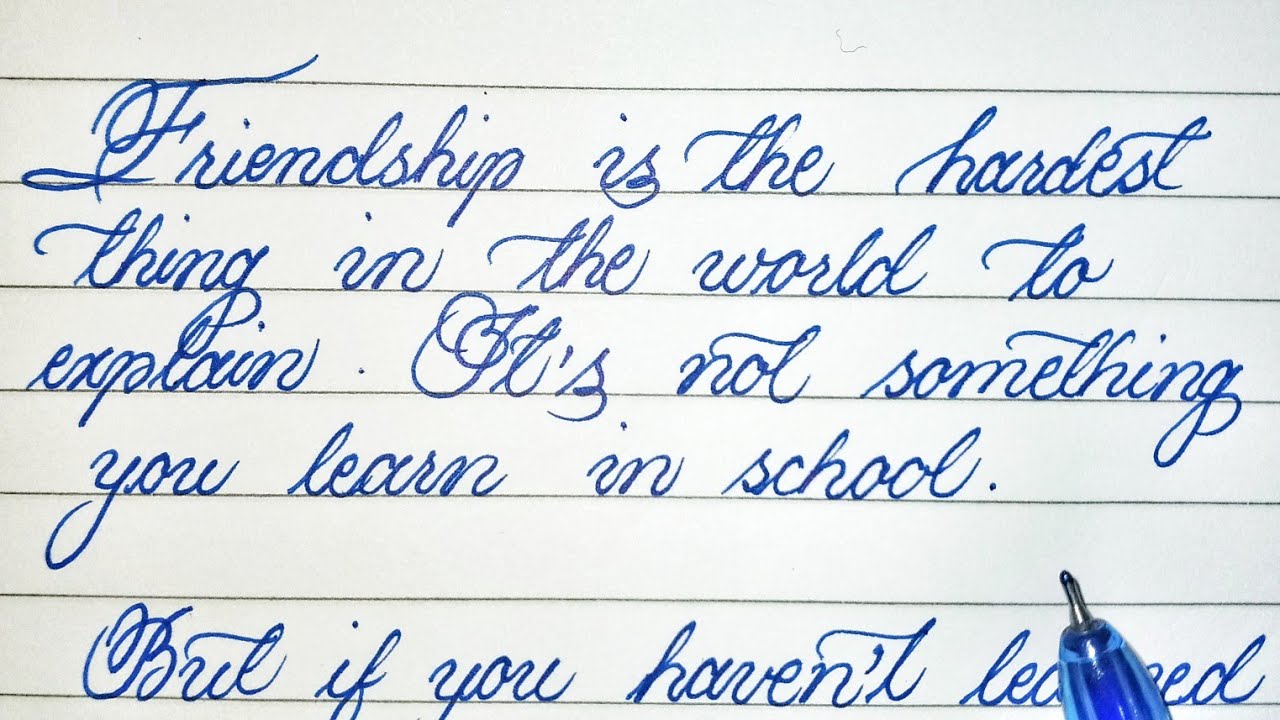 Friendship is the hardest
thing in the world to
explain. It's not something
you learn in school.
But if you haven't